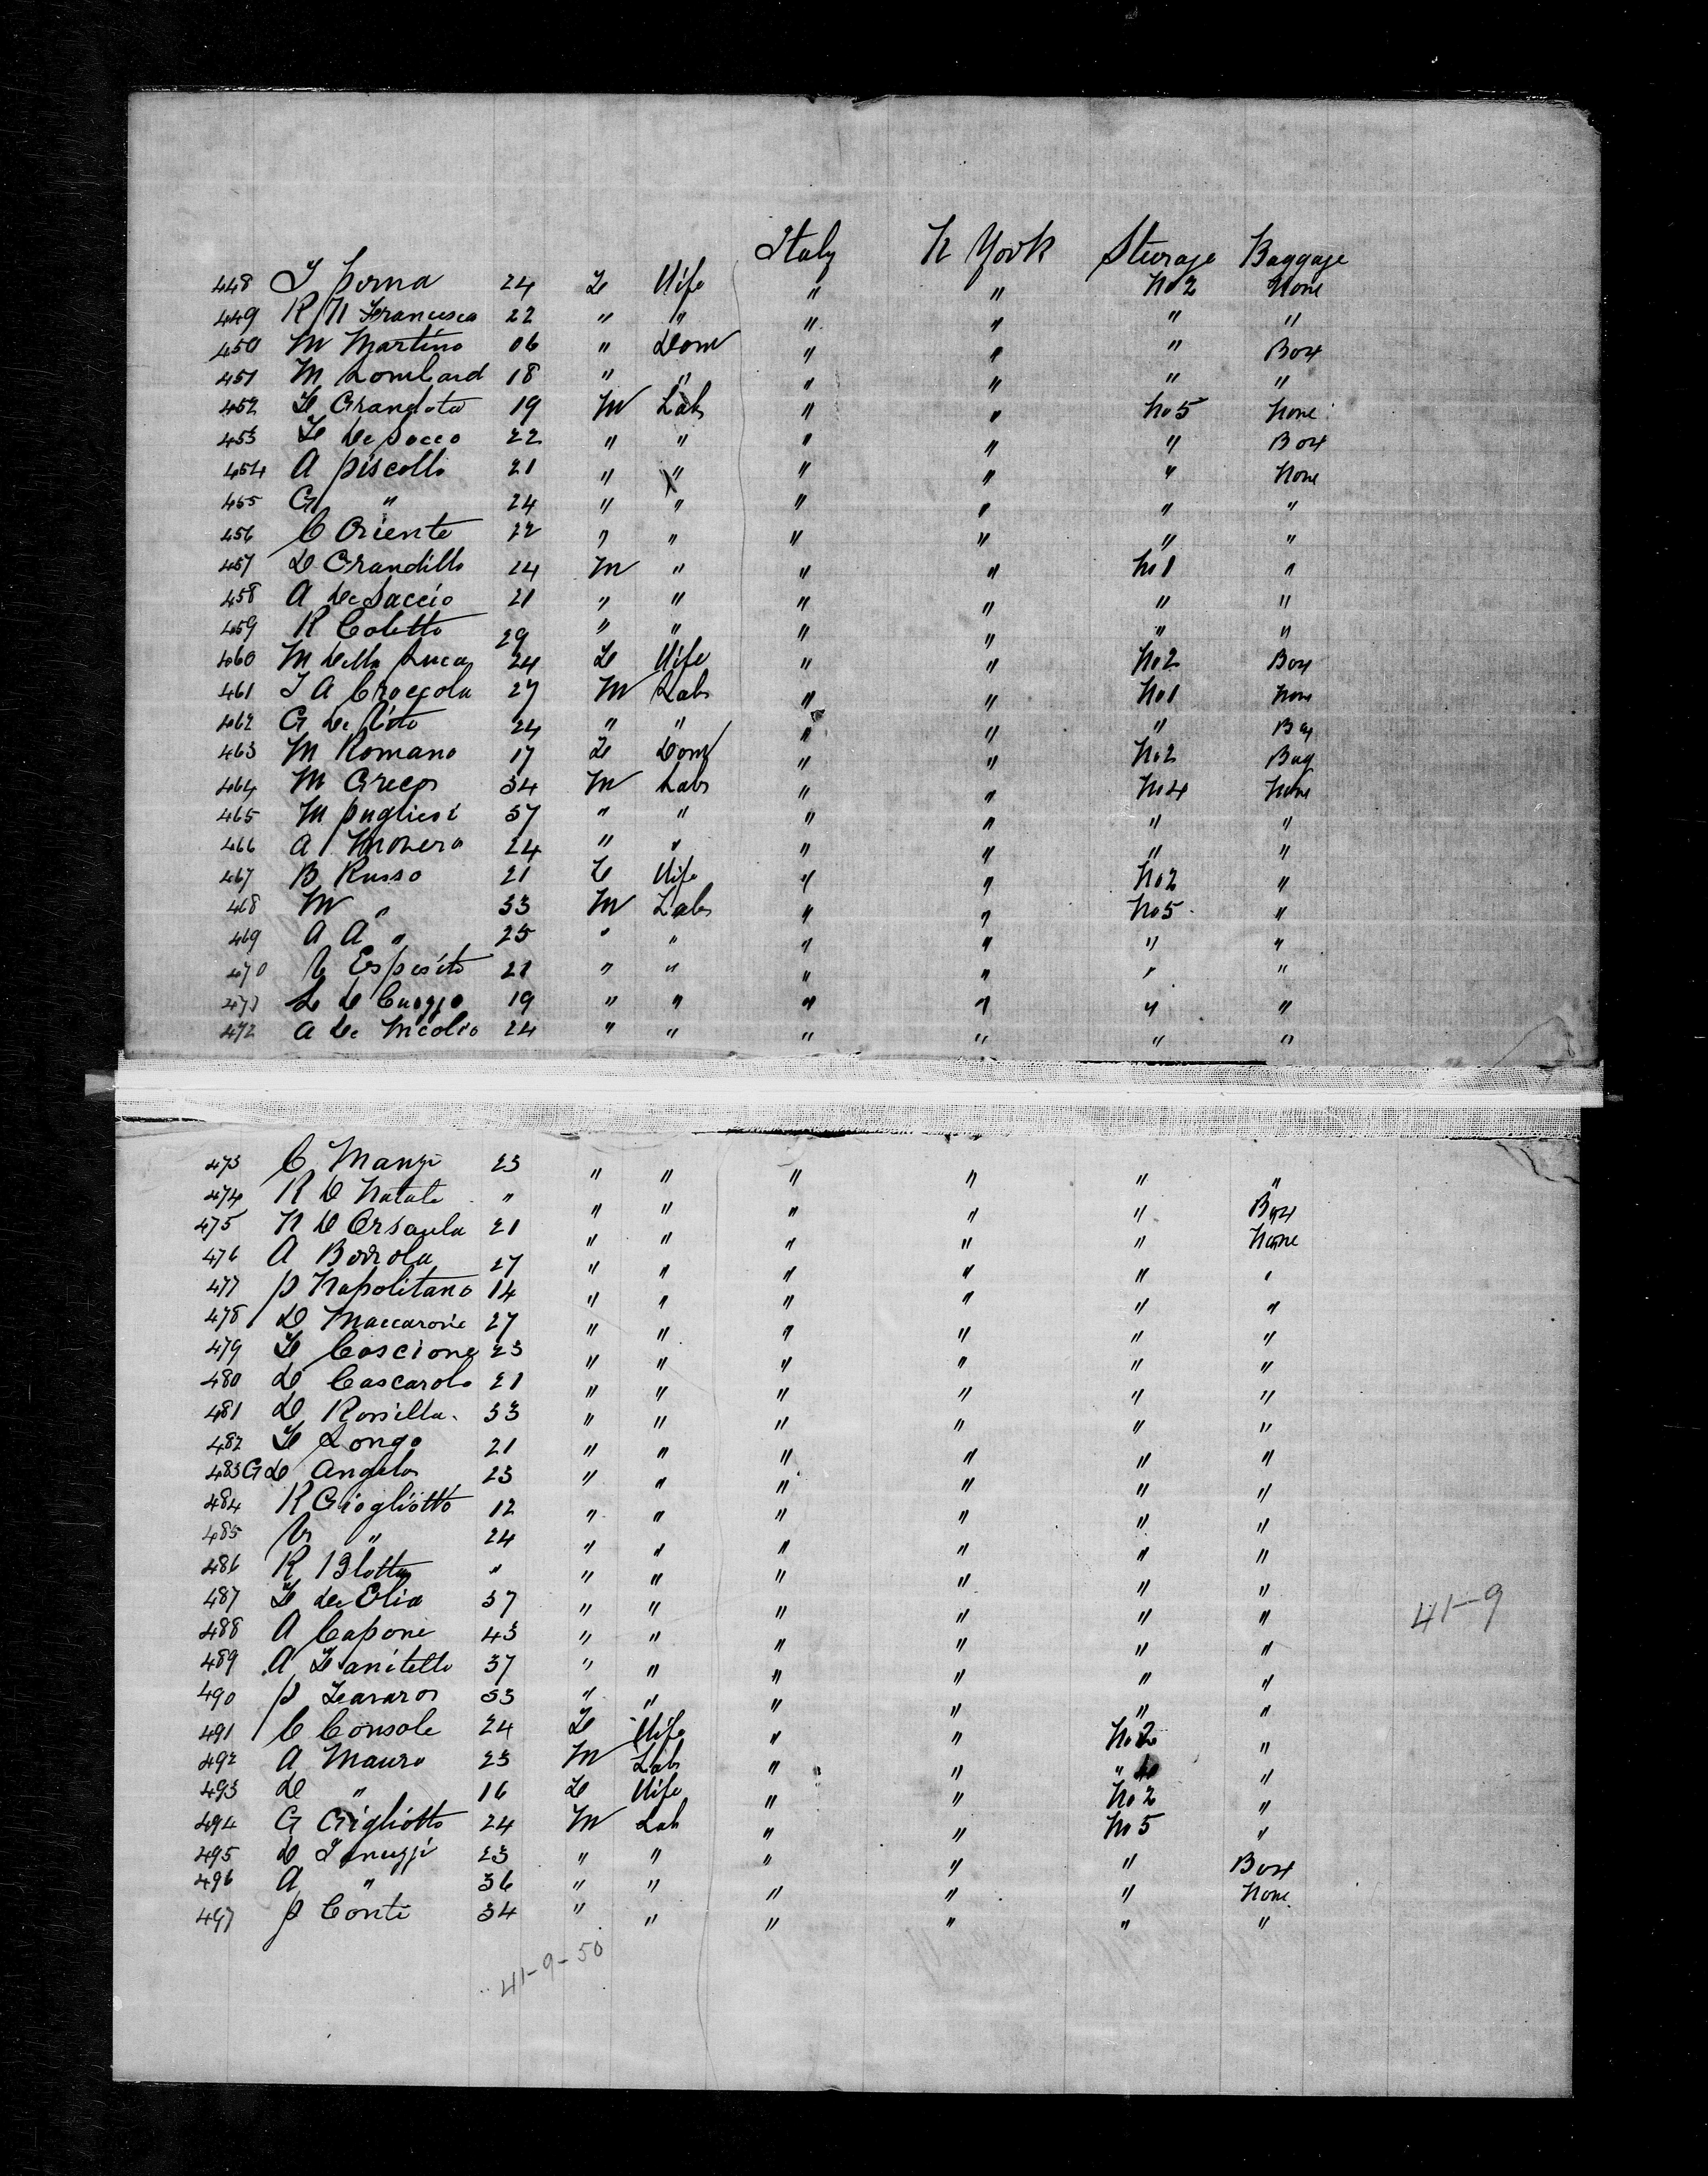 Italy N York Sterage Baggage
448 I Perna 24 Fe Wife " " No 2 None
449 R N Francesca 22 " " " " " "
450 M Martino 06 " Dom " " " Box
451 M Lombard 18 " " " " " "
452 F Grandota 19 M Lab " " No 5 None
453 F De Socco 22 " " " " " Box
454 A Piscollo 21 " " " " " None
455 G " 24 " " " " " "
456 C Oriente 22 " " " " " "
457 D Grandillo 24 M " " " No 1 "
458 A De Saccio 21 " " " " " "
459 R Coletto 29 " " " " " "
460 M Della Luca 24 Fe Wife " " No 2 Box
461 I A 27 M Lab " " No 1 None
462 G De 24 " " " " " Box
463 M Romano 17 Fe Dom " " No 2 Bag
464 M Greco 34 M Lab " " No 4 None
465 M Pugliesi 37 " " " " " "
466 A Monera 24 " " " " " "
467 B Russo 21 Fe Wife " " No 2 "
468 M " 33 M Lab " " No 5 "
469 A A " 25 " " " " " "
470 V Esposito 21 " " " " " "
471 L D Cuozzo 19 " " " " " "
472 A De Nicolio 24 " " " " " "
473 C Manzi 23 " " " " " "
474 R D Natale " " " " " " Box
475 N D Orsaula 21 " " " " " None
476 A 27 " " " " " "
477 P Napolitano 14 " " " " " "
478 D Maccarone 27 " " " " " "
479 F Coscione 23 " " " " " "
480 D Cascarolo 21 " " " " " "
481 D Rosilla 33 " " " " " "
482 F Longo 21 " " " " " "
483 G D Angelo 23 " " " " " "
484 R Giogliotto 12 " " " " " "
485 V " 24 " " " " " "
486 R Blotta " " " " " " "
487 F De Elia 37 " " " " " "
41-9
488 A Capone 43 " " " " " "
489 A Fanitello 37 " " " " " "
490 P 33 " " " " " "
491 C Console 24 Fe Wife " " No 2 "
492 A Mauro 23 M Lab " " " "
493 D " 16 Fe Wife " " No 2 "
494 G Gigliotto 24 M Lab " " No 5 "
495 D Ianuzzi 23 " " " " " Box
496 A " 36 " " " " " None
497 P Conti 34 " " " " " "
41-9-50